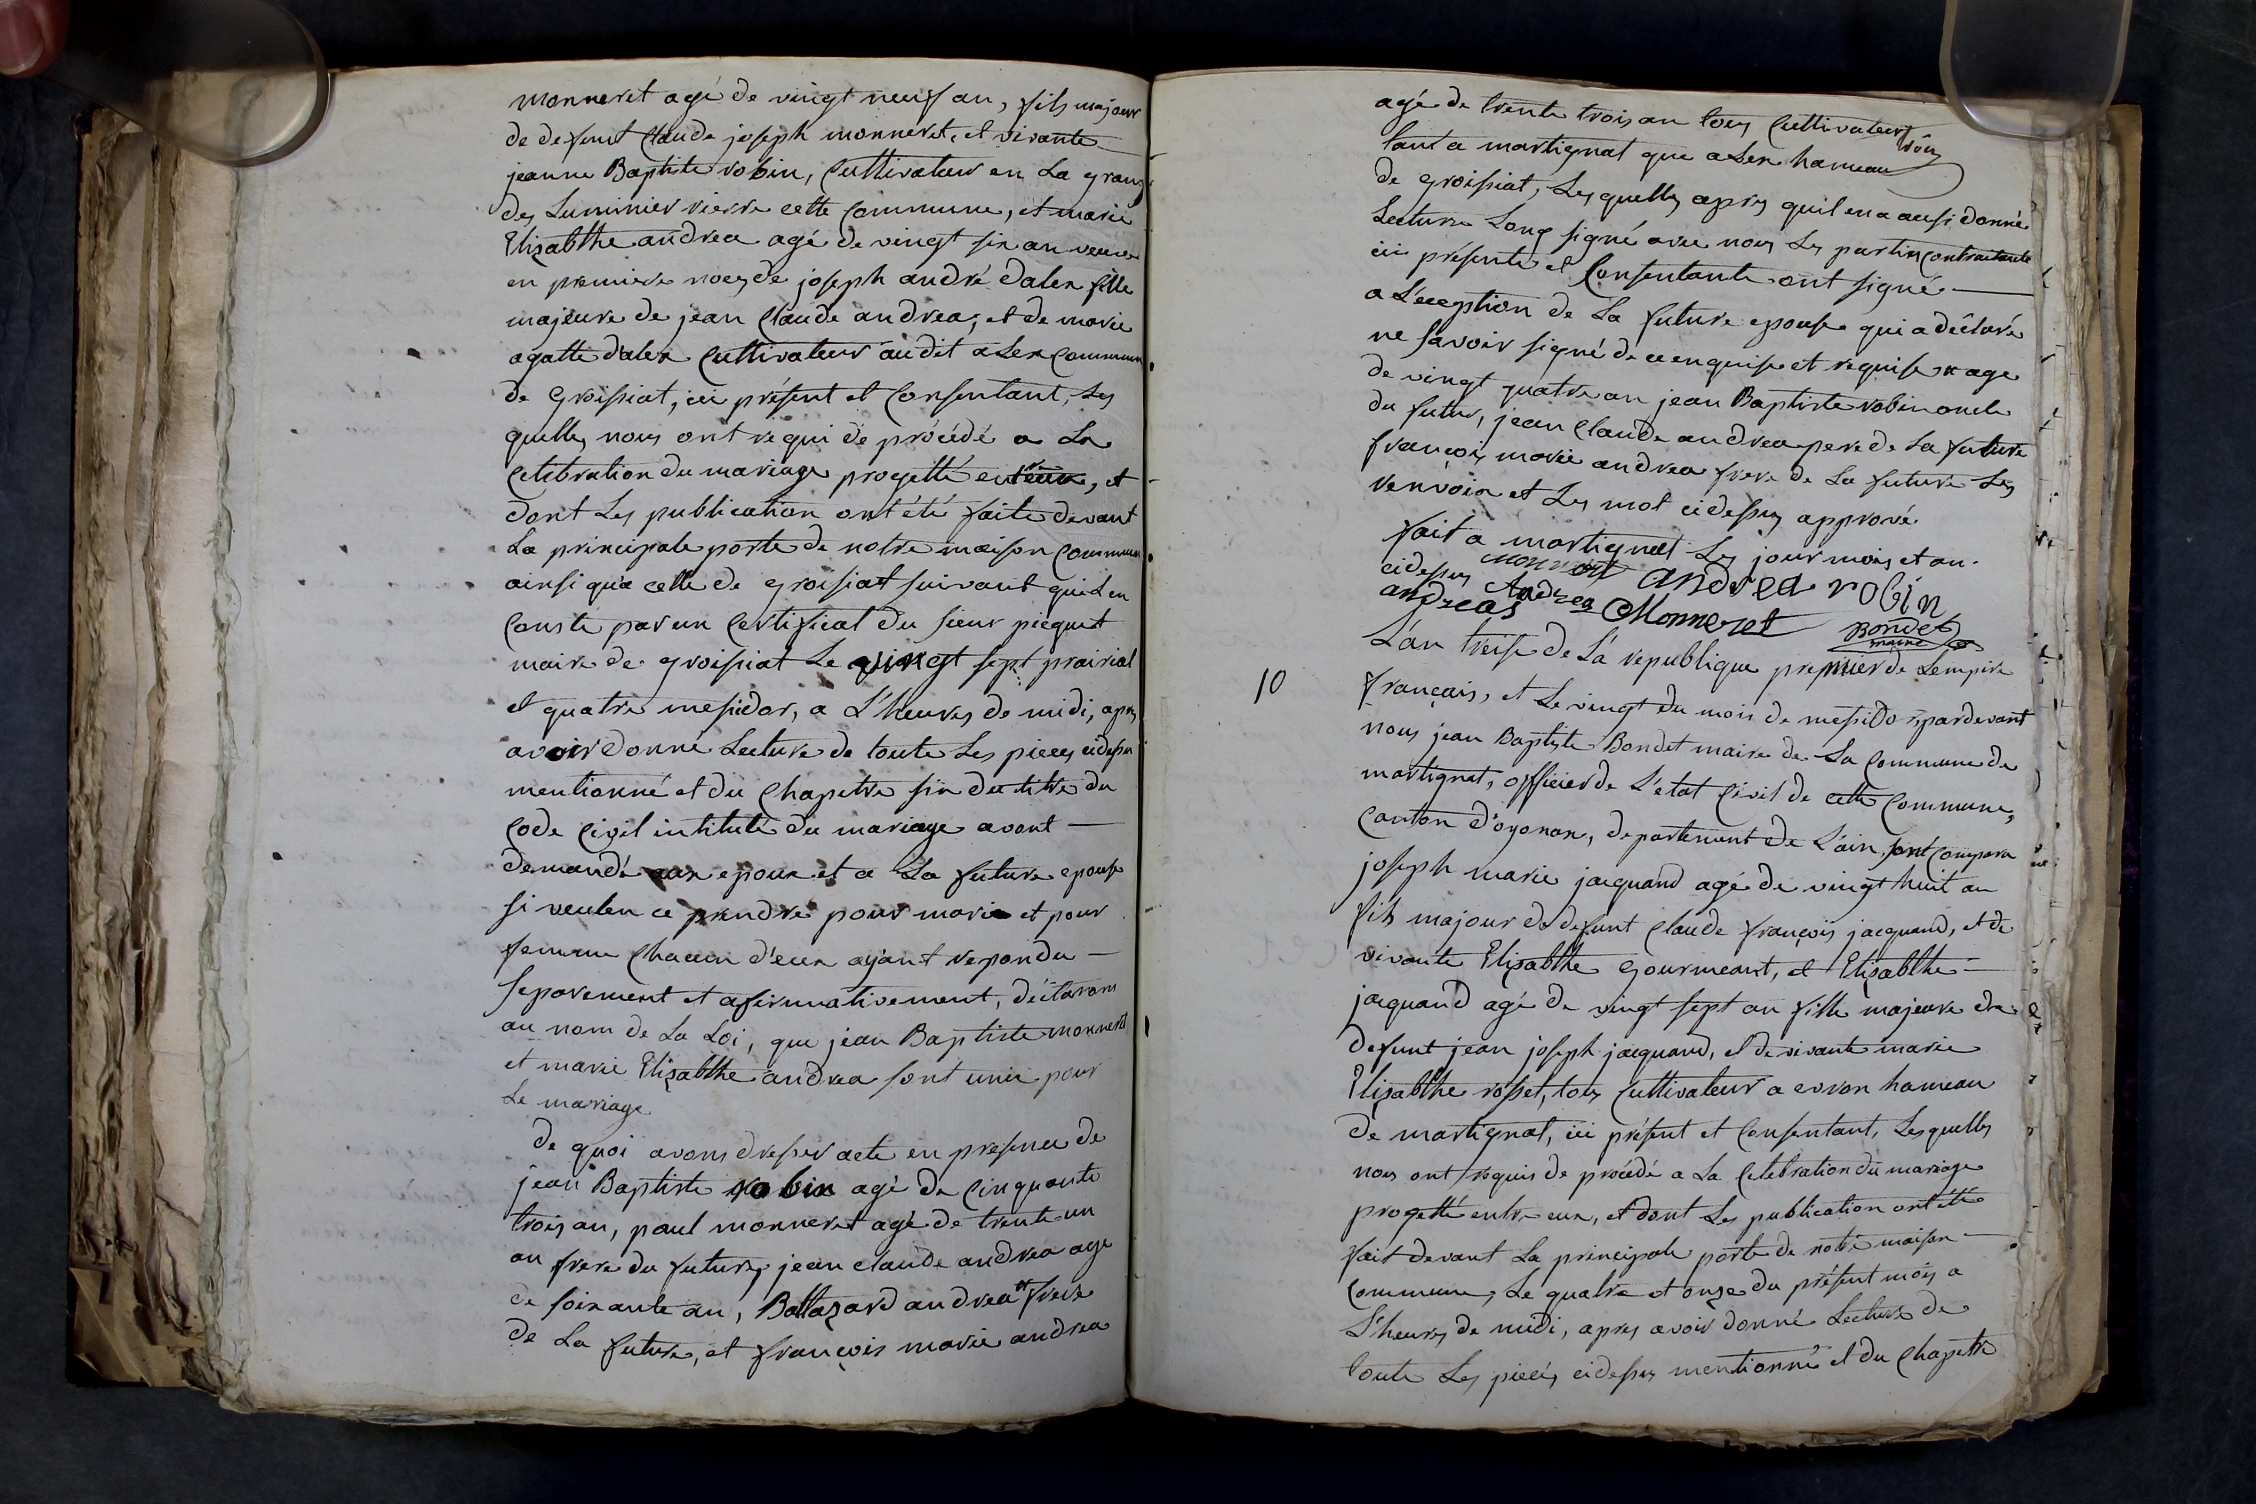 monneret agé de vingt neuf an, fils majour
de defunt Claude joseph monneret, et vivante
jeanne Baptiste robin, Cultivateur en La grang
des Luminier rierre cette Commune, et marie
Elizabthe andrea agé de vingt six an veuve
en premiere noces de joseph andré dalex fille
majeure de jean Claude andrea, et de marie
agatte dalex Cultivateur audit alex Commune
de groissiat, ici présent et Consentant, Les
quelles nous ont requi de procédé a La
Celebration du mariage progetté entreeux, et
dont Les publication ont été faite devant
La principale porte de notre maison Commune
ainsi qu'a celle de groissiat suivant quil en
Conste par un Certificat du sieur picquet
maire de groissiat Le vingt sept prairial
et quatre messidor, a L'heures de midi, apres
avoir donné Lecture de toute Les pieces cidessu
mentionné et du Chapetre six du titre du
Code Civil intitulé du mariage avont —
demandé aux epoux et a La future epouse
si veulen ce prendre pour marie et pour
femme Chacun d'eux ayant repondu —
separement et afirmativement, déclarons
au nom de La Loi, que jean Baptiste monneret
et marie Elizabthe andrea sont unis pour
Le mariage
de quoi avons dresser acte en presence de
jean Baptiste robin agé de Cinquante
trois an, paul monneret agé de trente un
an frere du future, jean claude andrea age
de soixante an, Baltazard andrea frere
de La future, et françois marie andrea
agé de trente trois an tous Cultivateur
tant a martignat que alex hameau
de groissiat, Lesquelles apres quil en a aussi donné
Lecture Long signé avec nous Les parties Contractante
ici présente et Consentante ont signé —
a L'éception de La future epouse qui a déclaré
ne savoir signé de ce enquise et requise age
de vingt quatre an jean Baptiste robin oncle
du futur, jean Claude andrea pere de La future
françois marie andrea frere de La future Les
renvois et Les mot cidessus approuvé
fait a martignat Les jour mois et an
cidessus monneret andrea robin
andreas Andrea Monneret Bondet
maire
10
L'an treise de La republique premier de Lempire
français, et Le vingt du mois de messidor pardevant
nous jean Baptiste Bondet maire de La Commune de
martignat, officier de L'état Civil de cette Commune,
Canton d'oyonax, departement de L'ain, sont Comparu
joseph marie jacquand agé de vingt huit an
fils majour de defunt Claude françois jacquand, et de
vivante Elizabthe Gourmeant, et Elizabthe —
jacquand agé de vingt sept an fille majeure de
defunt jean joseph jacquand, et de vivante marie
Elizabthe rosset, tous Cultivateur a evron hameau
de martignat, ici présent et Consentant, Lesquelles
nous ont requis de procédé a La Celebration du mariage
progetté entre eux, et dont Les publication ont été
fait devant La principale porte de notre maison —
Commune, Le quatre et onze du présent mois a
L'heures de midi, apres avoir donné Lecture de
toute Les pieces cidessus mentionné et du Chapetre